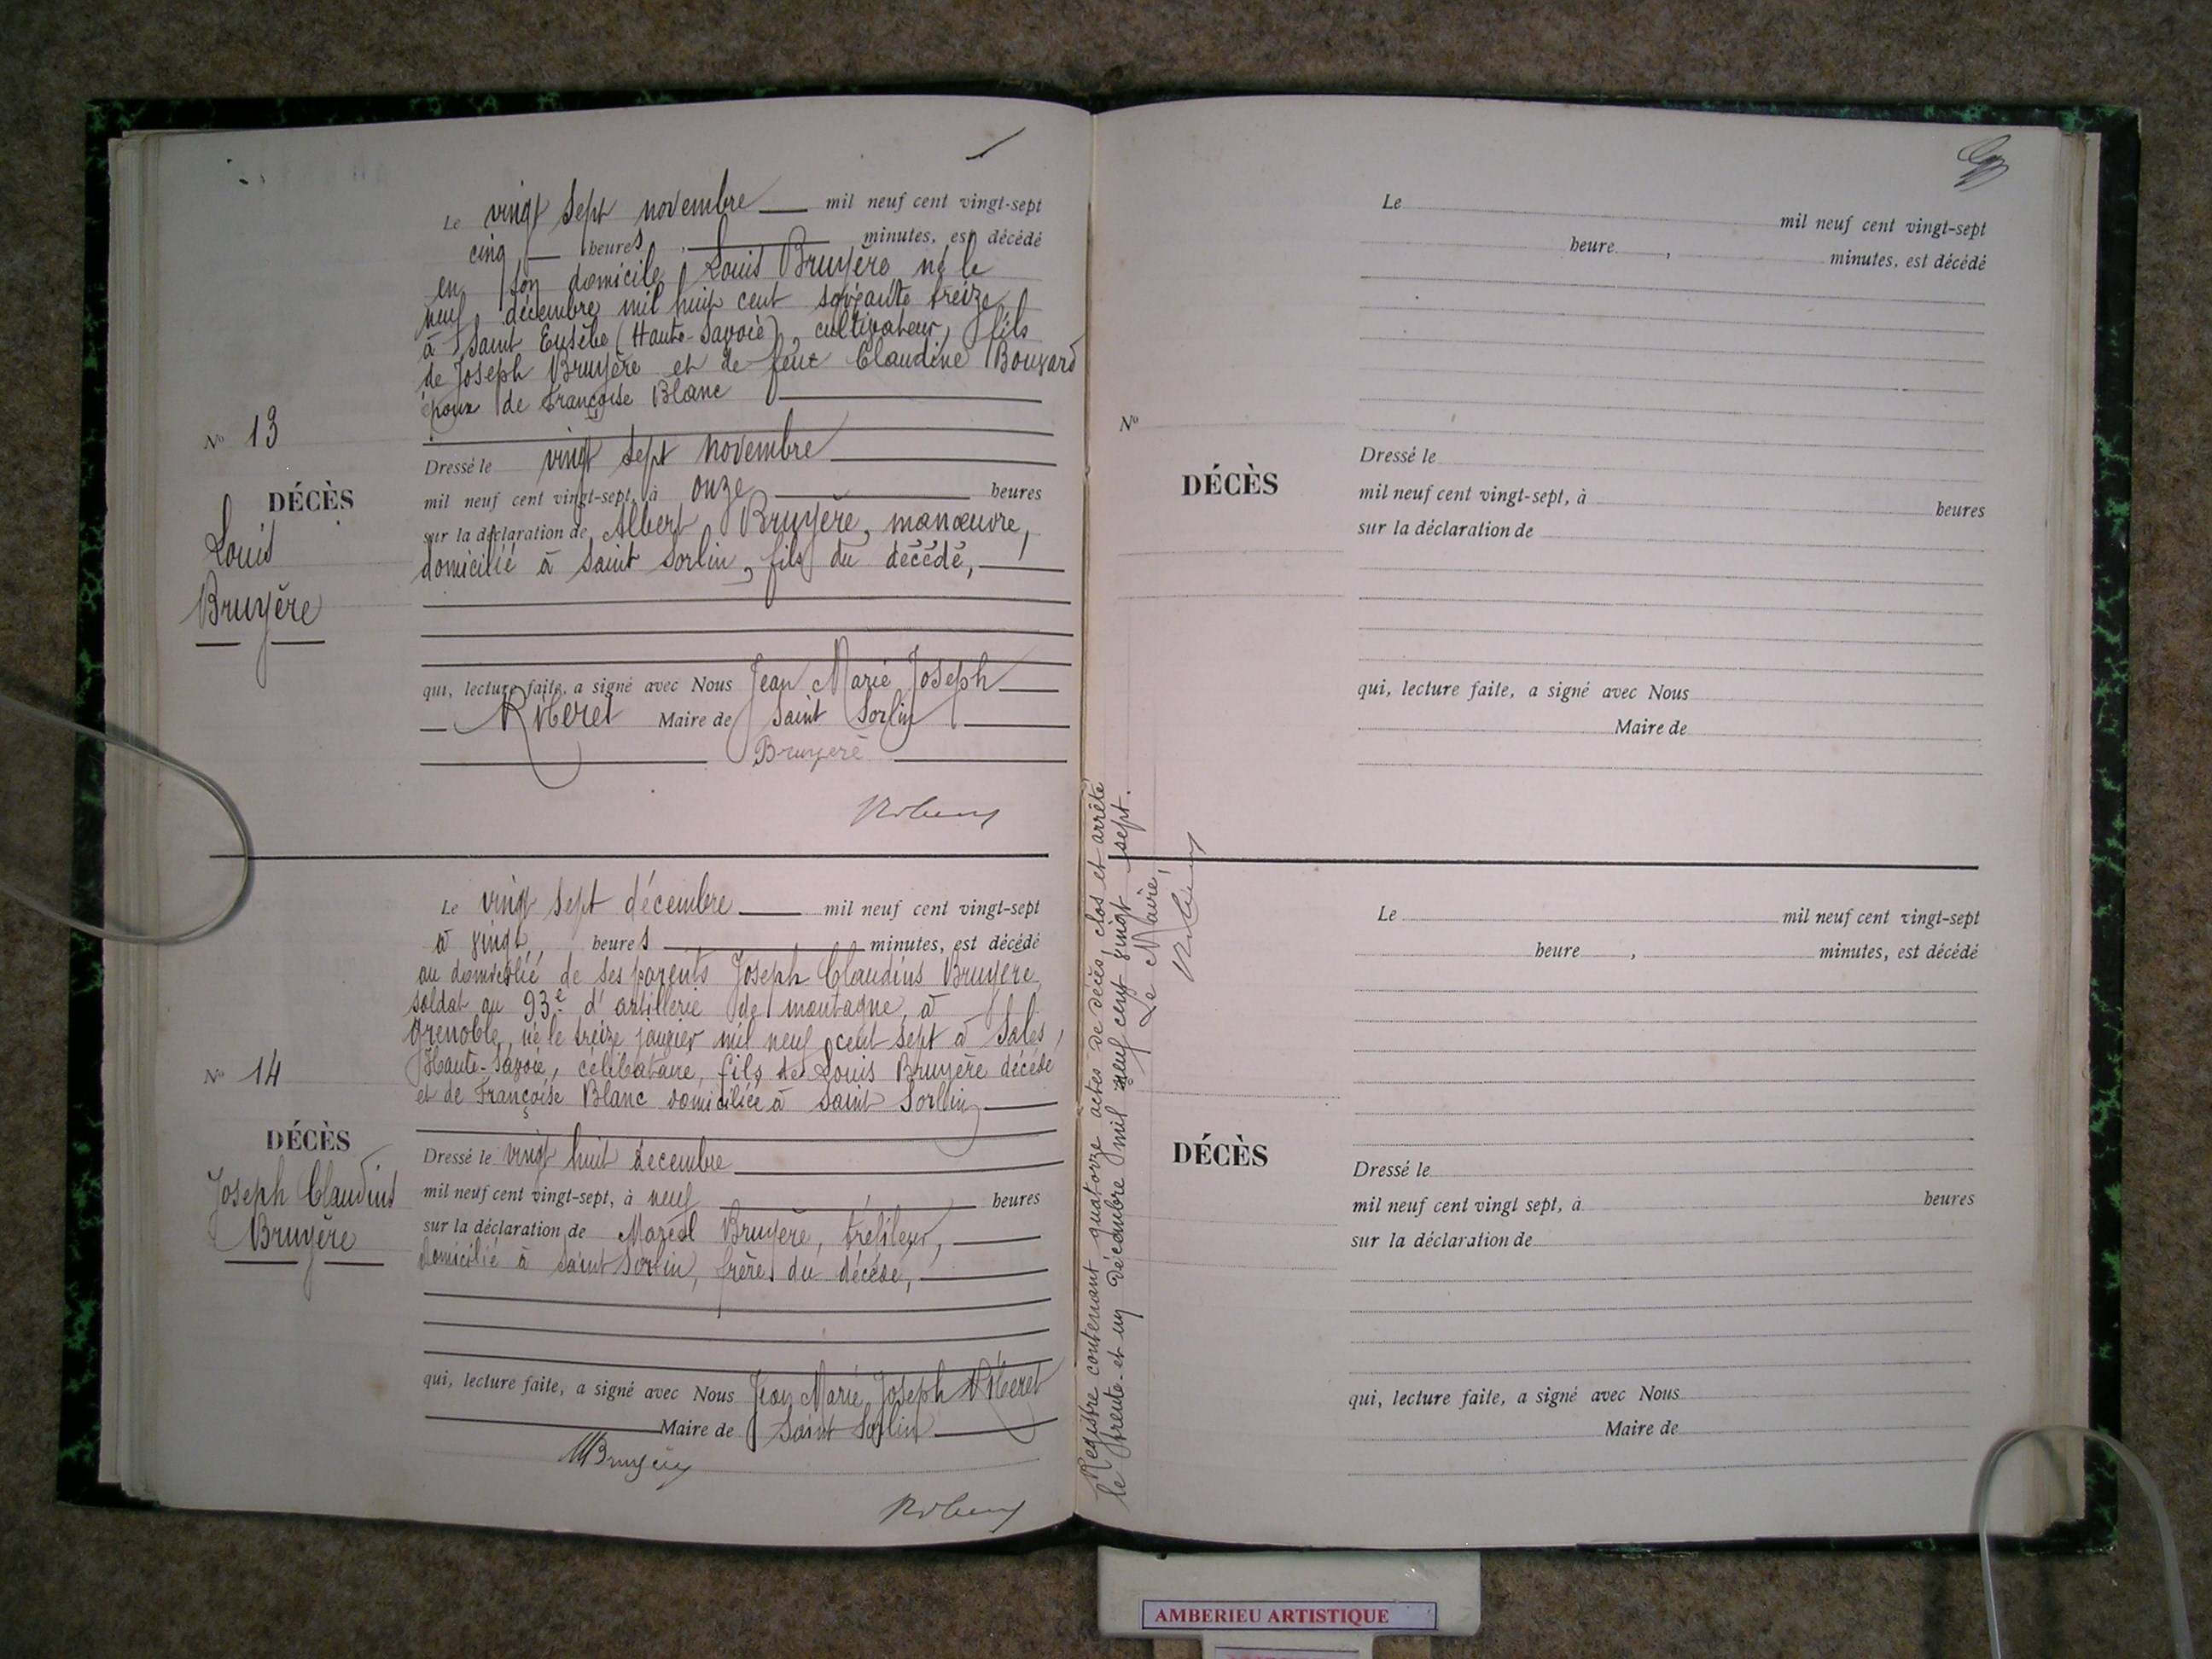 Le vingt sept novembre mil neuf cent vingt-sept
cinq heures minutes, est décédé
en son domicile Louis Bruyère né le
neuf décembre mil huit cent soixante treize
à Saint Eusèbe (Haute-Savoie), cultivateur, fils
de Joseph Bruyère et de feue Claudine Bouvard
époux de Françoise Blanc
N° 13
DÉCÈS
Louis
Bruyère
Dressé le vingt sept novembre
mil neuf cent vingt-sept, à onze heures
sur la déclaration de Albert Bruyère, manœuvre,
domicilié à Saint Sorlin, fils du décédé,
qui, lecture faite, a signé avec Nous Jean Marie Joseph
Riberet Maire de Saint Sorlin
Bruyere
Le vingt sept décembre mil neuf cent vingt-sept
à vingt heures minutes, est décédé
au domicilié de ses parents Joseph Claudius Bruyère,
soldat au 93e d'artillerie de montagne, à
Grenoble, né le treize janvier mil neuf cent sept à Sales,
Haute-Savoie, célibataire, fils de Louis Bruyère décédé
et de Françoise Blanc domiciliée à Saint Sorlin
N° 14
DÉCÈS
Joseph Claudius
Bruyère
Dressé le vingt huit décembre
mil neuf cent vingt-sept, à neuf heures
sur la déclaration de Marcel Bruyère, tréfileur,
domicilié à Saint Sorlin, frère du décédé,
qui, lecture faite, a signé avec Nous Jean Marie Joseph Riberet
Maire de Saint Sorlin
MBruyère
Registre contenant quatorze actes de décès, clos et arrêté
le trente-et-un décembre mil neuf cent vingt sept.
Le Maire,
Le mil neuf cent vingt-sept
heure , minutes, est décédé
N°
DÉCÈS
Dressé le
mil neuf cent vingt-sept, à heures
sur la déclaration de
qui, lecture faite, a signé avec Nous
Maire de
Le mil neuf cent vingt-sept
heure , minutes, est décédé
DÉCÈS
Dressé le
mil neuf cent vingt sept, à heures
sur la déclaration de
qui, lecture faite, a signé avec Nous
Maire de
AMBERIEU ARTISTIQUE